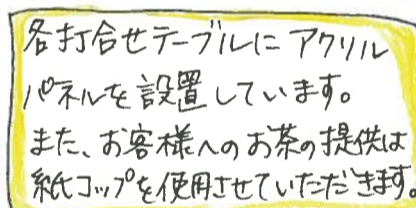 各打合せテーブルにアクリル
パネルを設置しています。
また、お客様へのお茶の提供は
紙コップを使用させていただきます。